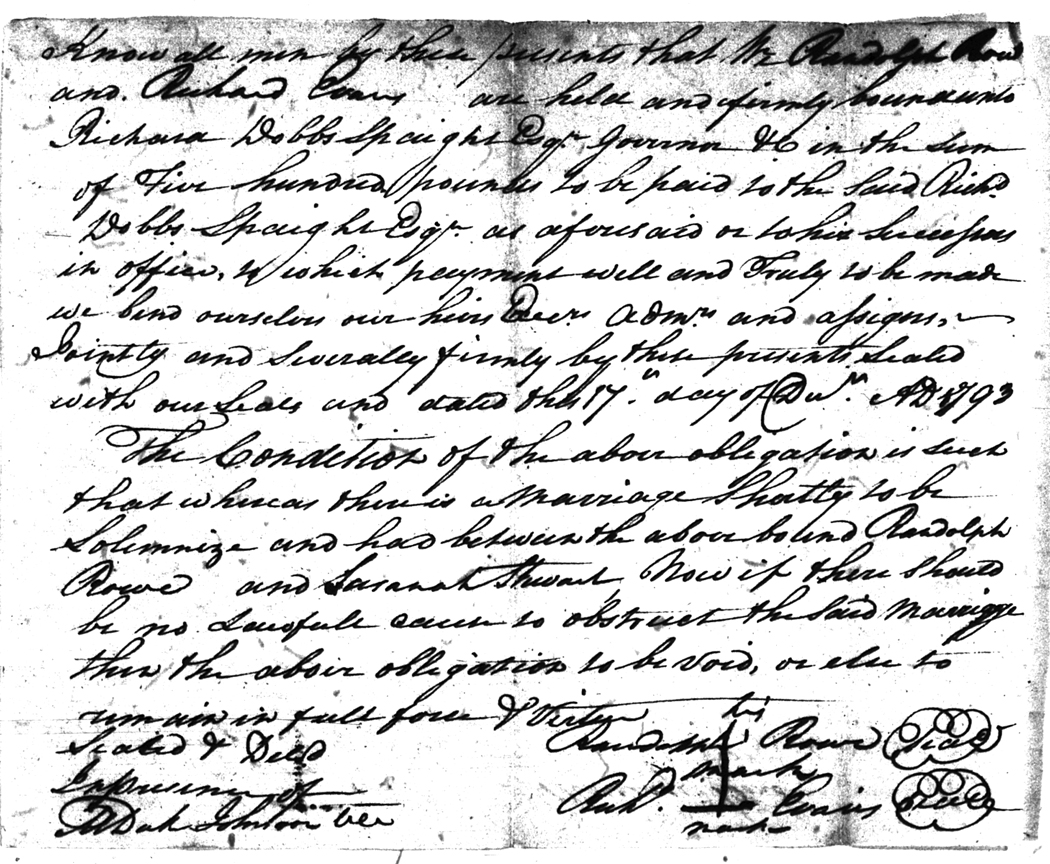 Know all men by these presents that We Randolph Row
and Richard Evans are held and firmly bound unto
Richard Dobbs Spaight Esqr. Governor &C in the Sum
of Five hundred pounds to be paid to the Said Richd.
Dobbs Spaight Esqr. as aforesaid or to his Successors
in office, to which payment well and Truly to be made
we bind ourselves our heirs Execrs. Admrs. and assigns,
Jointly and Severally firmly by these presents Sealed
with our Seals and dated this 17th day of AD 1793
The Condition of the above obligation is Such
that whereas there is a Marriage Shortly to be
Solemnize and had between the above bound Randolph
Rowe and Susanah Stewart Now if there Should
be no Lawfull cause to obstruct the Said Marriage
then the above obligation to be Void, or else to
remain in full force & Virtue
Sealed & Delld
In presence of
Johnson
his
Randolph Rowe Seal
mark
Richd. Evans Seal
mark